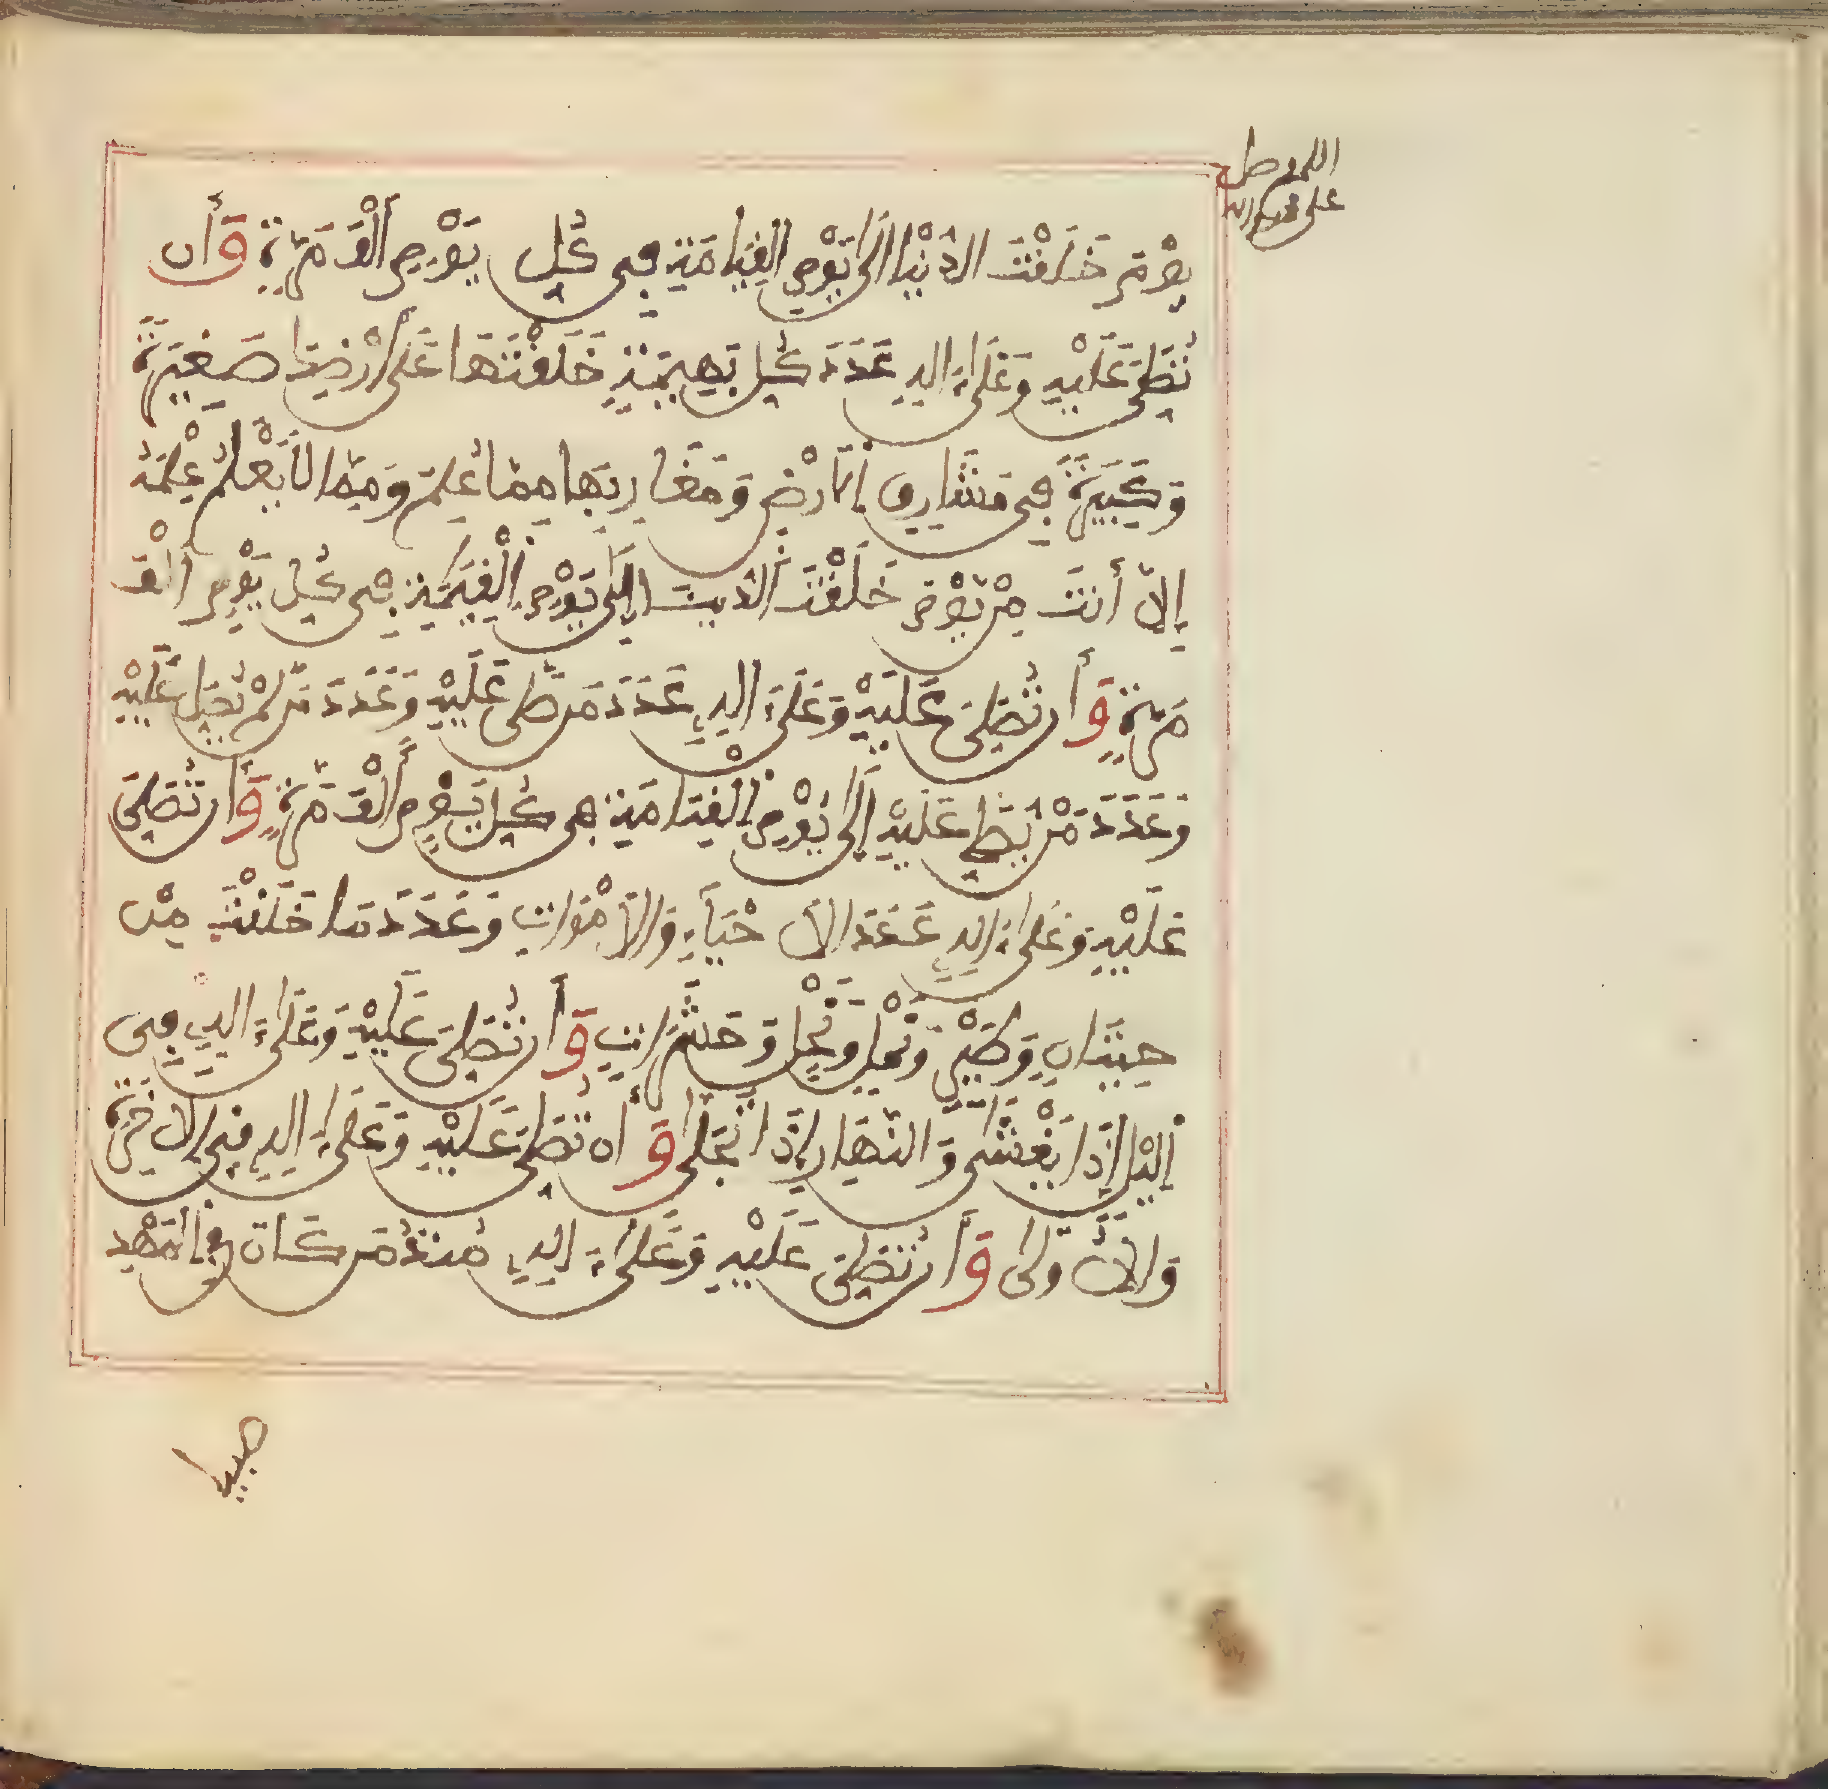 اللهم صل
على محمد واله
يَوْمَ خَلَقْتَ الدُّنْيَا إِلَى يَوْمِ الْقِيَامَةِ فِي كُلِّ يَوْمٍ أَلْفَ مَرَّةٍ وَأَن
تُصَلِّيَ عَلَيْهِ وَعَلَى ءَالِهِ عَدَدَ كُلِّ بَهِيمَةٍ خَلَقْتَهَا عَلَى أَرْضِكَ صَغِيرَةً
وَكَبِيرَةً فِي مَشَارِقِ الْأَرْضِ وَمَغَارِبِهَا مِمَّا عُلِمَ وَمِمَّا لَا يَعْلَمُ عِلْمَهُ
إِلَّا أَنتَ مِنْ يَوْمَ خَلَقْتَ الدُّنْيَا إِلَى يَوْمِ الْقِيَمَةِ فِي كُلِّ يَوْمٍ أَلْفَ
مَرَّةٍ وَأَن تُصَلِّيَ عَلَيْهِ وَعَلَى ءَالِهِ عَدَدَ مَن صَلَّى عَلَيْهِ وَعَدَدَ مَن لَمْ يُصَلِّ عَلَيْهِ
وَعَدَدَ مَنْ يُصَلِّي عَلَيْهِ إِلَى يَوْمِ الْقِيَامَةِ فِي كُلِّ يَوْمٍ أَلْفَ مَرَّةٍ وَأَن تُصَلِّيَ
عَلَيْهِ وَعَلَى ءَالِهِ عَدَدَ الْأَحْيَاءِ وَالْأَمْوَاتِ وَعَدَدَ مَا خَلَقْتَ مِنْ
حِيتَانٍ وَطَيْرٍ وَنَمْلٍ وَنَحْلٍ وَحَشَرَاتٍ وَأَن تُصَلِّيَ عَلَيْهِ وَعَلَى ءَالِهِ فِي
الَّيْلِ إِذَا يَغْشَى وَالنَّهَارِ إِذَا تَجَلَّى وَأَن تُصَلِّيَ عَلَيْهِ وَعَلَى ءَالِهِ فِي الْأَخِرَةِ
وَالْأُولَى وَأَن تُصَلِّيَ عَلَيْهِ وَعَلَى ءَالِهِ مُنذُ كَانَ فِي الْمَهْدِ
صبيا